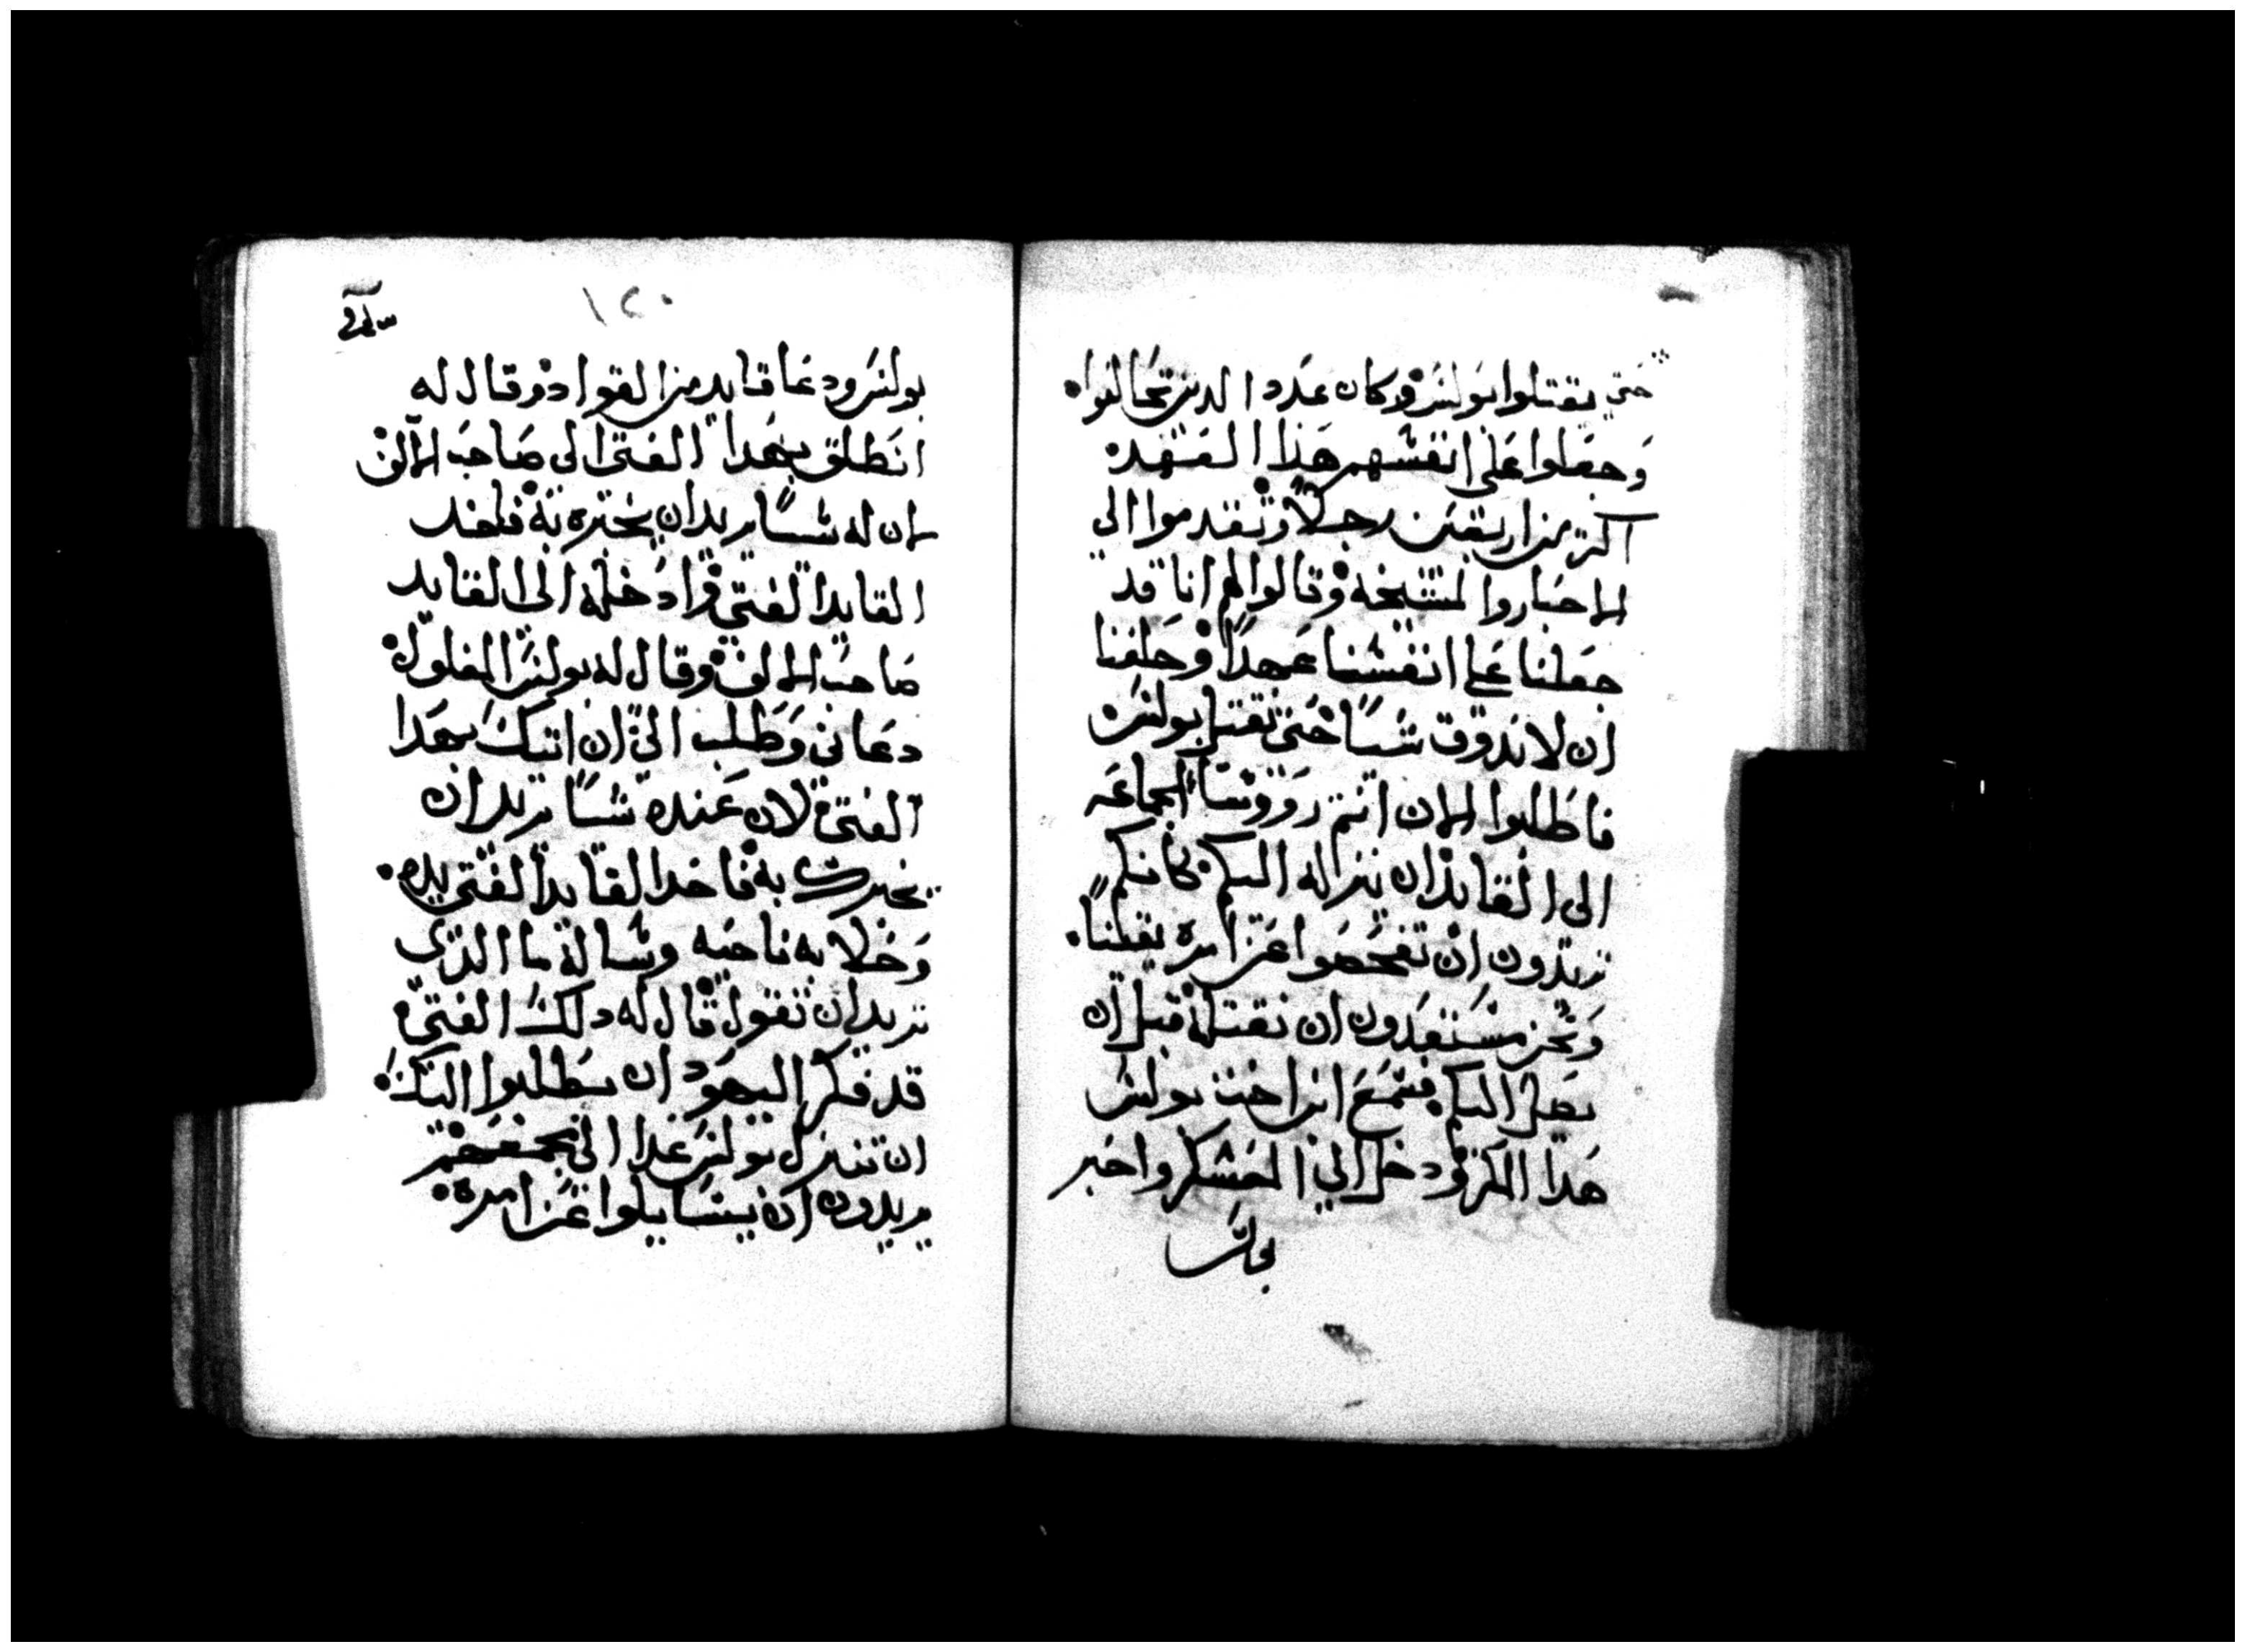 حتي يقتلوا بولس وكان عدد الدين تحالفوا
وجعلوا علي انفسهم هذا العهد
اكتر من اربعين رجلاً وتقدموا الي
الاحبار والمشيخه وقالوا لهم انا قد
جعلنا علي انفسنا عهداً وحلفنا
ان لا ندوق شياً حتي نقتل بولس
فاطلبوا الان انتم وروسا الجماعه
الى القايد ان ينزله اليكم كانكم
تريدون ان تفحصوا عن امره يقيناً
ونحن مستعدون ان نقتله قبل ان
يصل اليكم فسمع ابن اخت بولس
هدا المكر ودخل الي المعسكر واخبر
بولس
١٢٠
بولس ودعا قايد من القواد وقال له
انطلق بهدا الفتى الى صاحب الالف
لان له شياً يريد ان يخبره به فاخد
القايد الفتي وادخله الى القايد
صاحب الالف وقال له بولس المغلول
دعاني وطلب اليّ ان اتيك بهدا
الفتى لان عنده شياً يريد ان
يخبرك به فاخد القايد الفتى بيده
وخلا به ناحيه وساله ما الذي
تريد ان تقول قال له دلك الفتى
قد فكر اليهود ان يطلبوا اليك
ان تنزل بولس غدا الى مجمعهم
يريدون ان يسايلوا عن امره